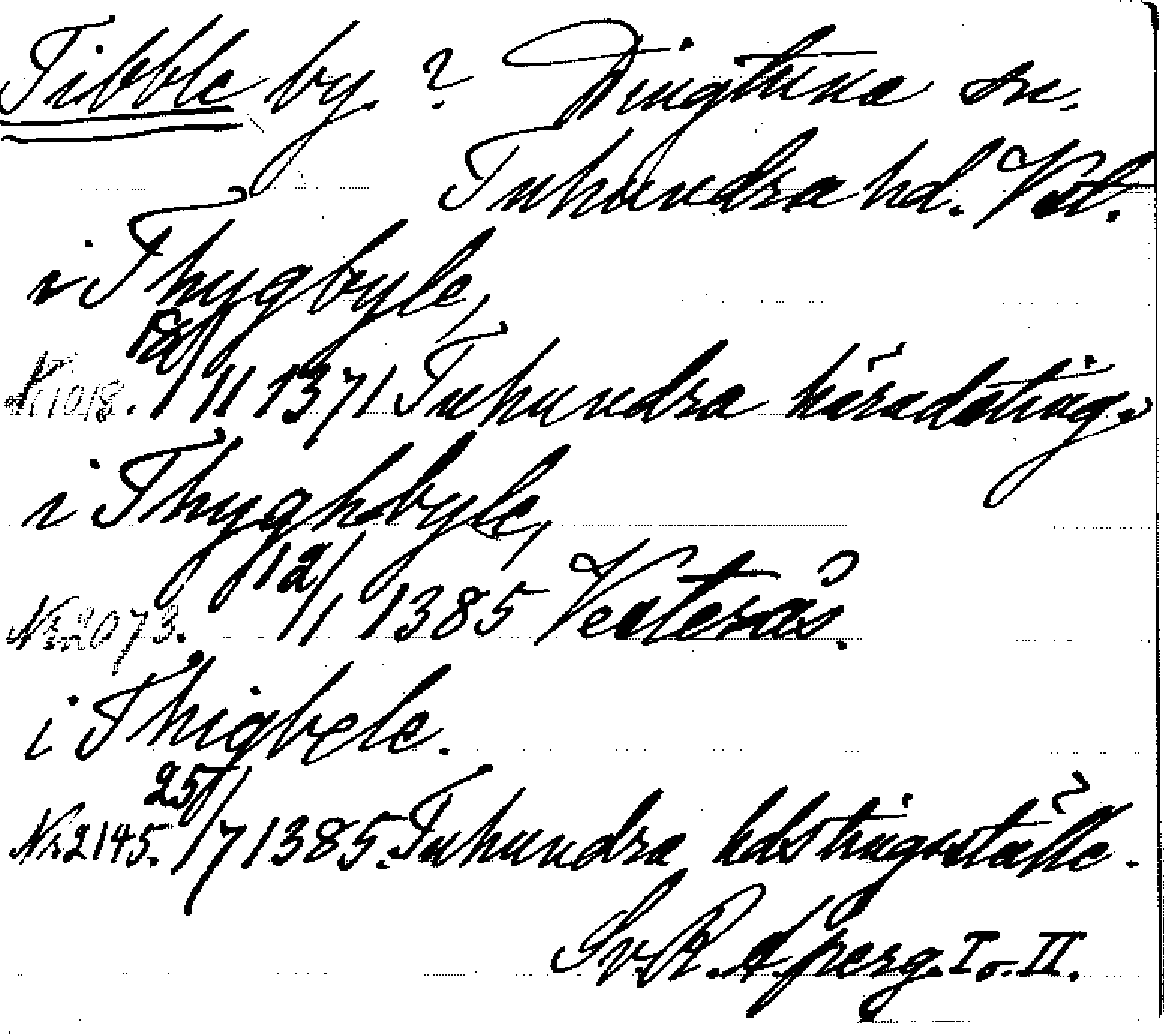 Tibble by? Dingtuna sn.
Tuhundra hd. Vstl.
i Thygbyle,
Nr 1018. 18/11 1371 Tuhundra häradsting.
i Thyghbyle,
Nr 2073. 12/1 1385 Vesterås.
i Thigbyle.
Nr 2145. 25/7 1385. Tuhundra hdstingsställe.
Sv. R. A. perg. I o. II.